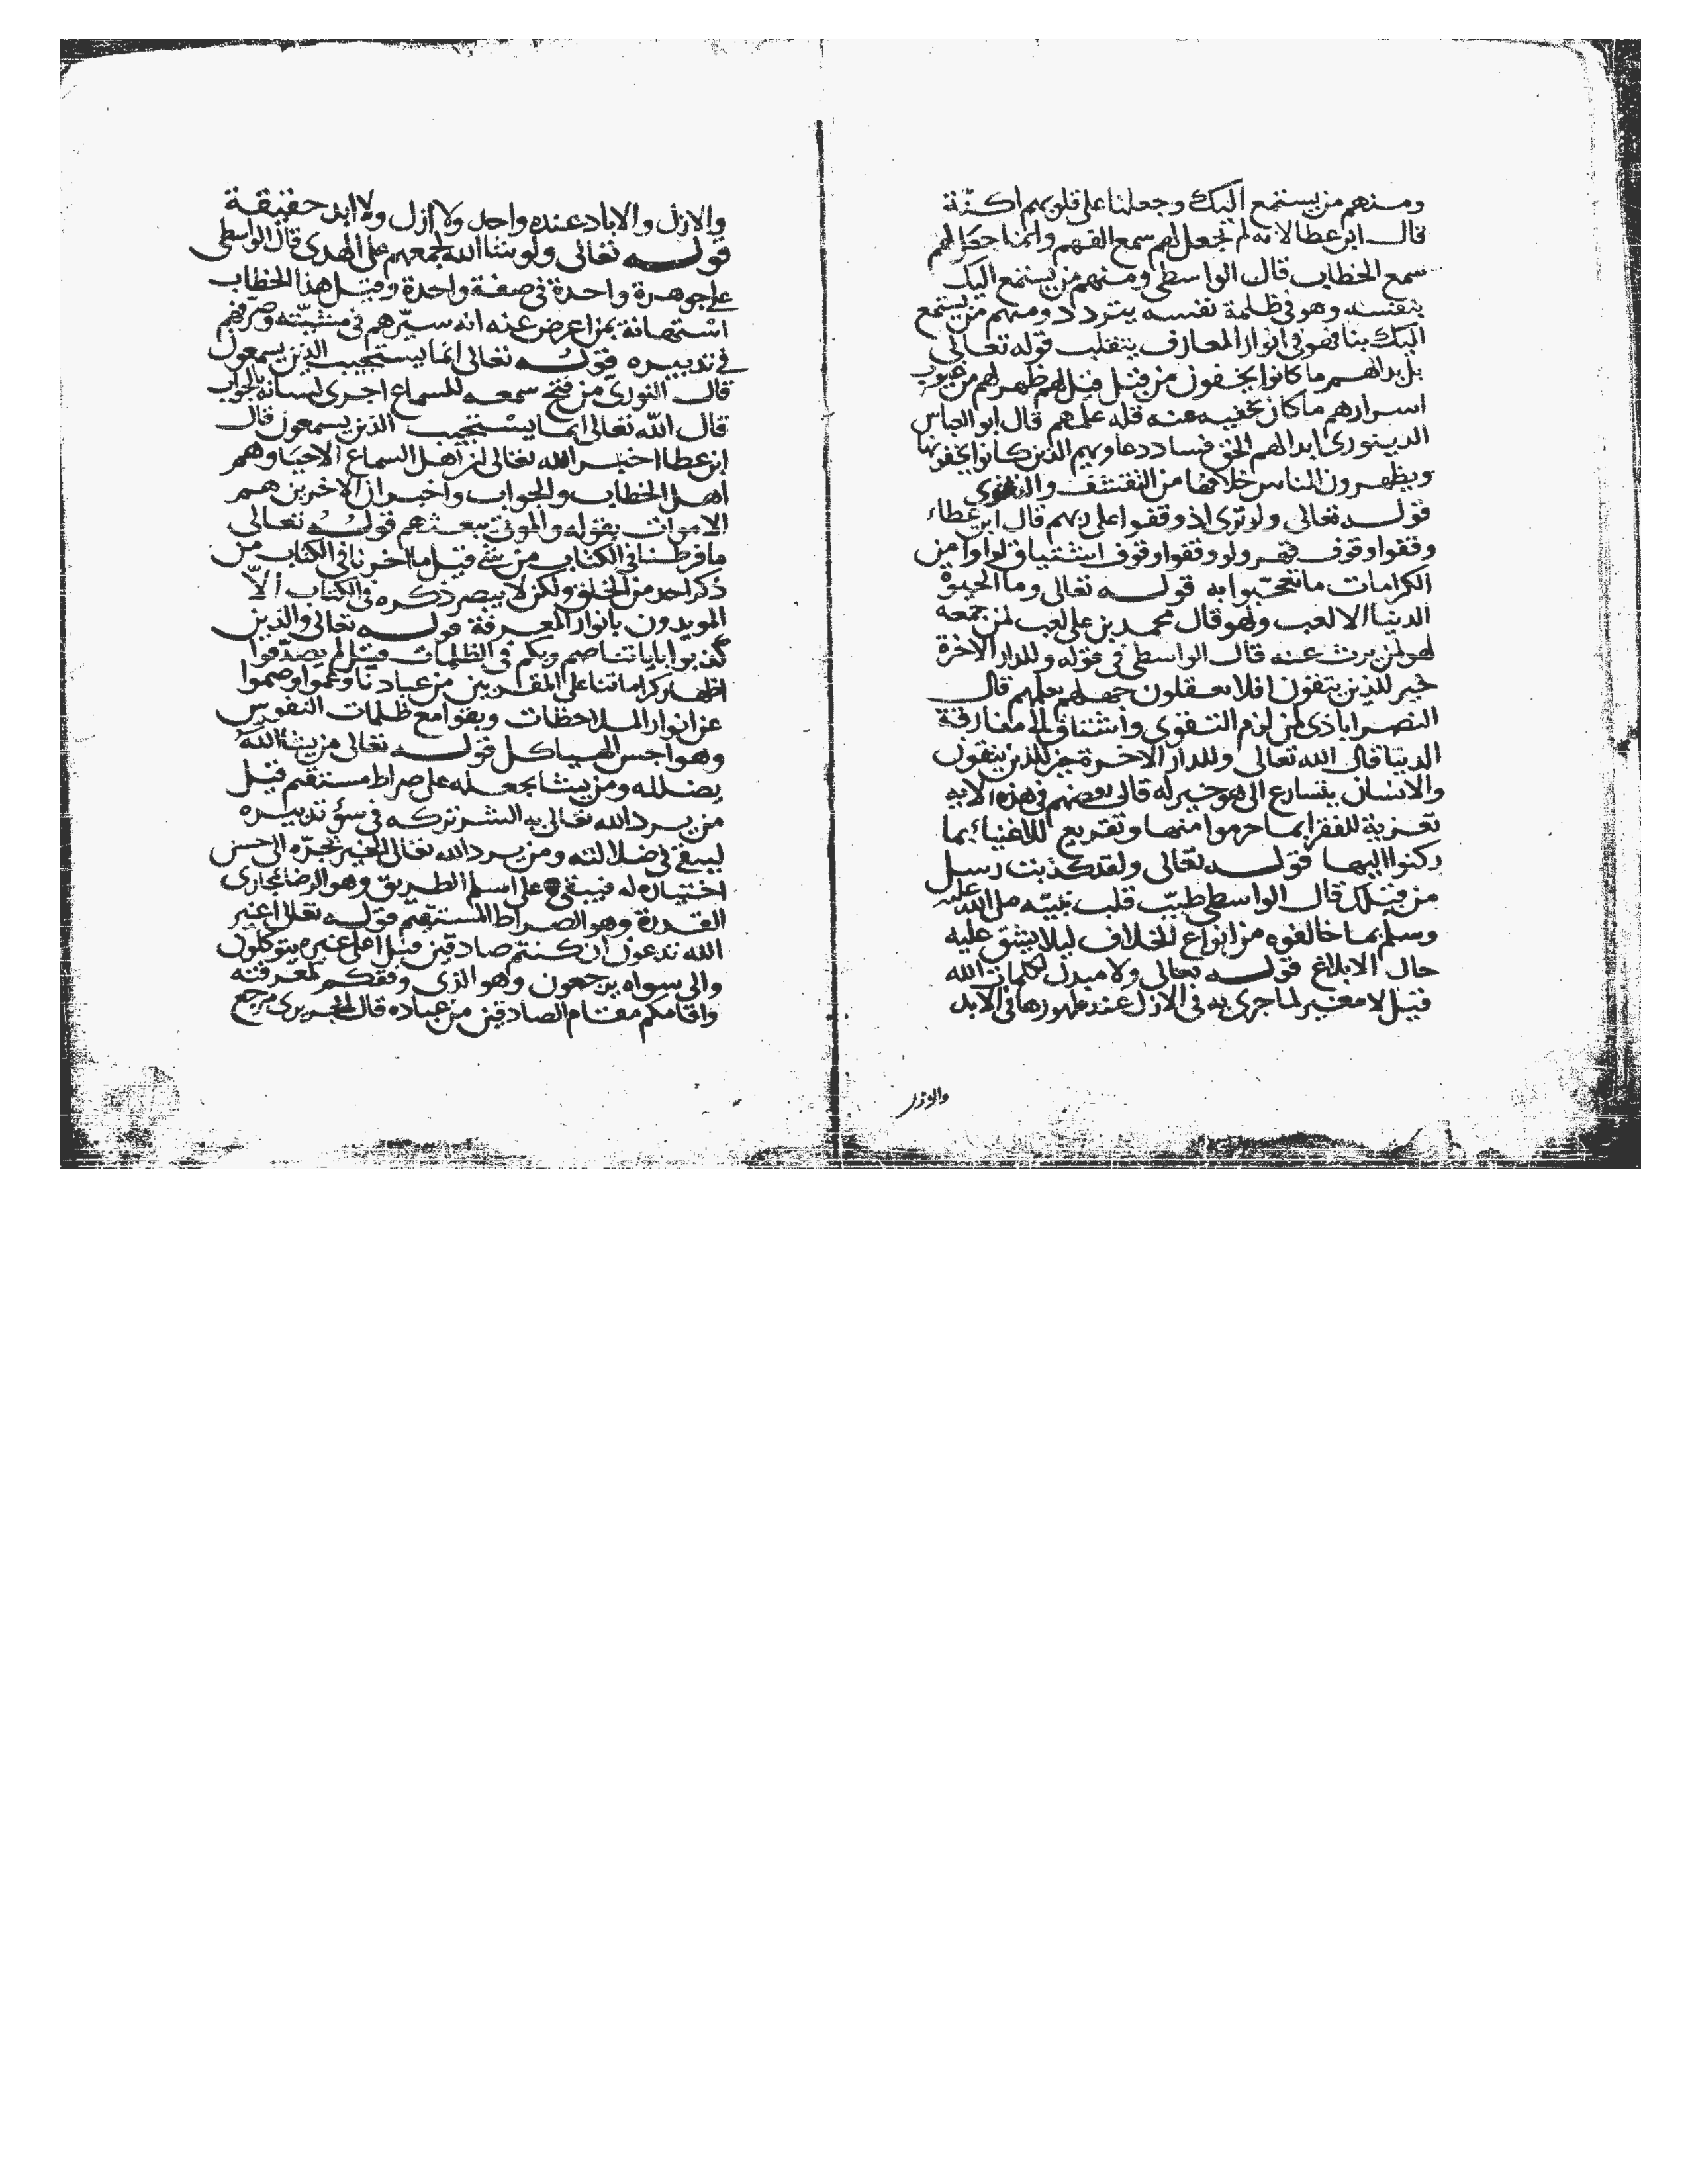 ومنهم من يستمع اليك وجعلنا على قلوبهم اكنّة
قال ابن عطا لانه لم يجعل لهم سمع الفهم وانما جعل لهم
سمع الخطاب قال الواسطى ومنهم من يستمع اليك
بنفسه وهو فى ظلمة نفسه يتردد ومنهم من يستمع
اليك بنا فهو فى انوار المعارف يتقلب قوله تعالى
بل بدا لهم ما كانوا يخفون من قبل قيل لهم ظهر لهم من عيوب
اسرارهم ما كان يخفيه عنه قلة علمهم قال ابو العباس
الدينورى ابدا لهم الحق فساد دعاويهم الذين كانوا يخفونها
ويظهرون للناس خلافها من التقشف والتقوى
قوله تعالى ولو ترى اذ وقفوا على ربهم قال ابن عطاء
وقفوا وقوف قهر ولو وقفوا وقوف اشتياق لراوا من
الكرامات ما تعجّبوا به قوله تعالى وما الحيوة
الدنيا الا لعب ولهو قال محمد بن على لعب لمن جمعه
لهو لمن يرث عنه قال الواسطى فى قوله وللدار الاخرة
خير للذين يتقون افلا تعقلون جهلهم بعلمهم قال
النصراباذى لمن لزم التقوى واشتاق الى مفارقة
الدنيا قال الله تعالى وللدار الاخرة خير للذين يتقون
والانسان يتسارع الى هو خير له قال بعضهم فى هذه الاية
تعزية للفقرا بما حرموا منها وتقريع للاغنياء بما
ركنوا اليها قوله تعالى ولقد كذبت رسل
من قبلك قال الواسطى طيّب قلب نبيّه صلى الله عليه
وسلم بما خالفوه من انواع الخلاف ليلا يشق عليه
حال الابلاغ قوله تعالى ولا مبدل لكلمات الله
قيل لا مغير لما جرى به فى الازل عند ظهورها فى الابد
والازل
والازل والاباد عنده واحد ولا ازل ولا ابد حقيقة
قوله تعالى ولو شا الله لجمعهم على الهدى قال الواسطى
على جوهرة واحدة فى صفة واحدة وقيل هذا الخطاب
استهانة بمن اعرض عنه انه سيّرهم فى مشيّته وصرّفهم
فى تدبيره قوله تعالى انما يستجيب الذين يسمعون
قال النورى من فتح سمعه للسماع اجرى لسانه بالجواب
قال الله تعالى انما يستجيب الذين يسمعون قال
ابن عطا اخبر الله تعالى ان اهل السماع الاحيا وهم
اهل الخطاب والجواب واخبر ان الاخرين هم
الاموات بقوله والموتى يبعثهم قوله تعالى
ما فرطنا فى الكتاب من شى قيل ما اخرنا فى الكتاب من
ذكر احد من الخلق ولكن لا يبصر ذكره فى الكتاب الّا
المويدون بانوار المعرفة قوله تعالى والذين
كذبوا باياتنا صم وبكم فى الظلمات قيل لم يصدّقوا
اظهار كراماتنا على المقربين من عبادنا وعموا وصموا
عن انوار الملاحظات وبقوا مع ظلمات النفوس
وهواجس الهياكل قوله تعالى من يشا الله
يضلله ومن يشا يجعله على صراط مستقيم قيل
من يرد الله تعالى به الشر تركه فى سؤ تدبيره
ليبقى فى ضلالته ومن يرد الله تعالى الخير يجرّه الى حسن
اختياره له فيبقى على اسلم الطريق وهو الرضا بمجارى
القدرة وهو الصراط المستقيم قوله تعالى اغير
الله تدعون ان كنتم صادقين قيل اعلى غيره يتوكلون
والى سواه يرجعون وهو الذى وفقكم لمعرفته
واقامكم مقام الصادقين من عباده قال الجريرى مرجع